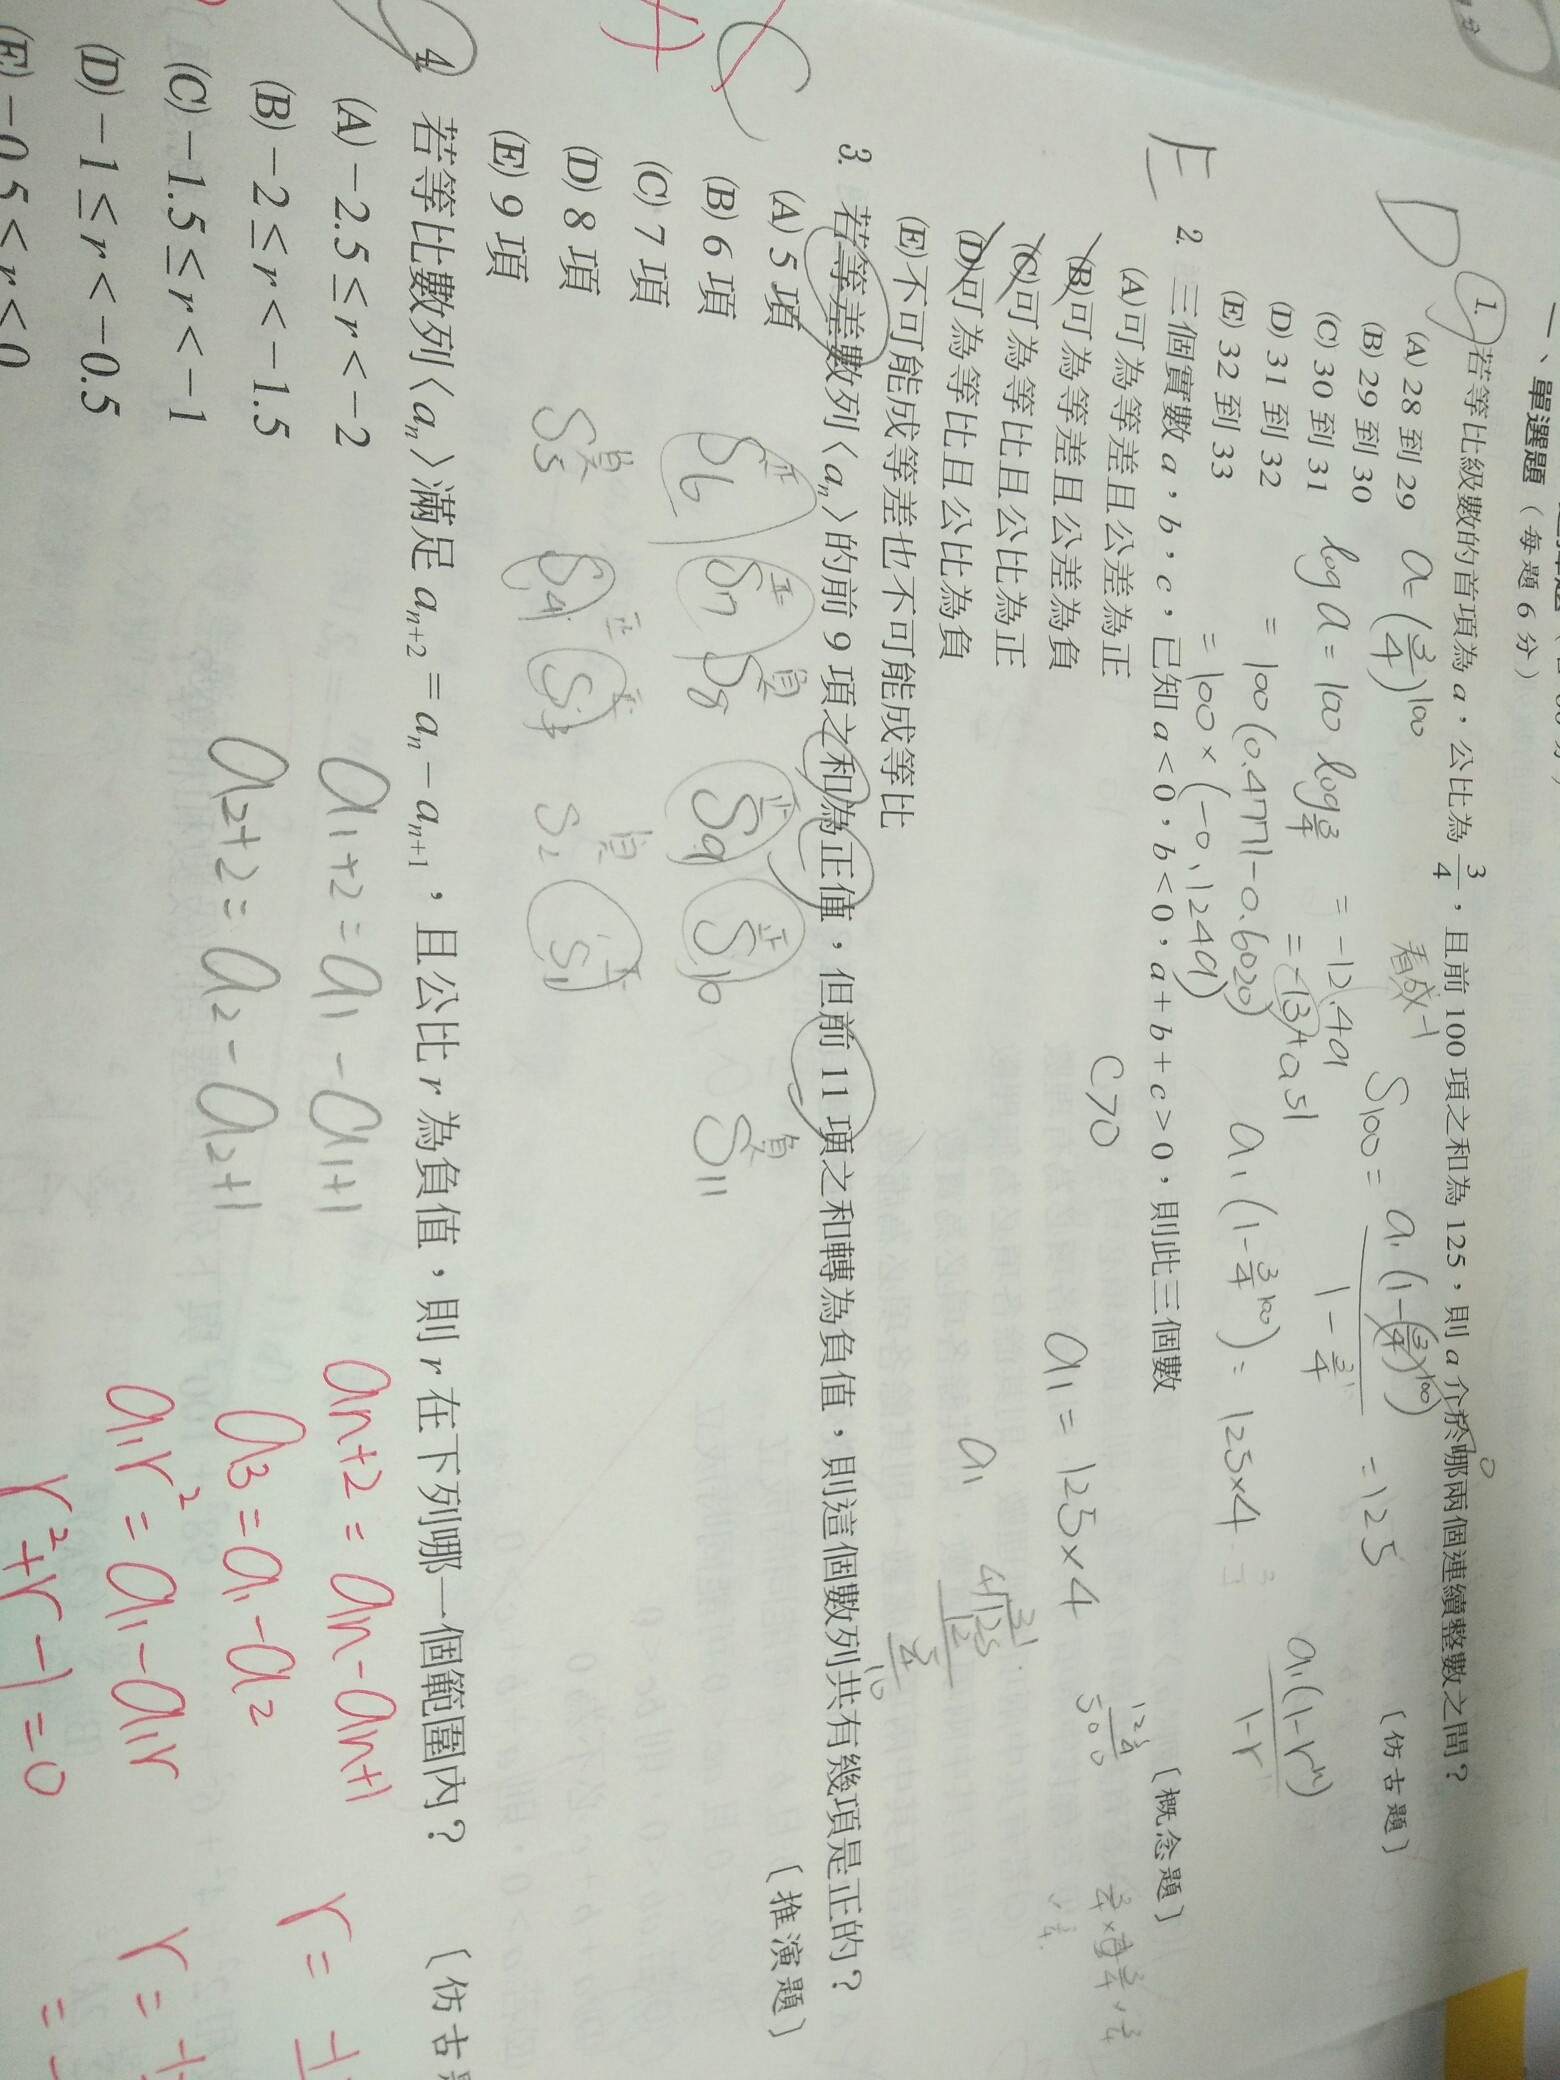 一、單選題（每題 6 分）
D
1. 若等比級數的首項為 a，公比為 3/4，且前 100 項之和為 125，則 a 介於哪兩個連續整數之間？
〔仿古題〕
(A) 28 到 29
(B) 29 到 30
(C) 30 到 31
(D) 31 到 32
(E) 32 到 33
a=(3/4)^100
log a = 100 log 3/4 = -12.49
= 100(0.4771-0.6020)
= -13+0.51
= 100×(-0.1249)
看成-1
S100 = a1(1-(3/4)^100) / (1-3/4) = 125
0
a1(1-3/4^100) = 125×4
a1(1-r^n) / (1-r)
a1 = 125×4
a1
E
2. 三個實數 a，b，c，已知 a<0，b<0，a+b+c>0，則此三個數
〔概念題〕
(A)可為等差且公差為正
(B)可為等差且公差為負
(C)可為等比且公比為正
(D)可為等比且公比為負
(E)不可能成等差也不可能成等比
C>0
C
A
3. 若等差數列〈an〉的前 9 項之和為正值，但前 11 項之和轉為負值，則這個數列共有幾項是正的？
〔推演題〕
(A) 5 項
(B) 6 項
(C) 7 項
(D) 8 項
(E) 9 項
正 正 負 正 正 負
S6 S7 S8 S9 S10 S11
負 正 正 負 正
S5 S4 S3 S2 S1
4. 若等比數列〈an〉滿足 an+2 = an − an+1，且公比 r 為負值，則 r 在下列哪一個範圍內？
〔仿古
(A) −2.5 ≤ r < −2
(B) −2 ≤ r < −1.5
(C) −1.5 ≤ r < −1
(D) −1 ≤ r < −0.5
(E) −0.5 ≤ r < 0
a1+2 = a1 - a1+1
a2+2 = a2 - a2+1
an+2 = an - an+1
a3 = a1 - a2
a1r² = a1 - a1r
r²+r-1=0
r =
r =